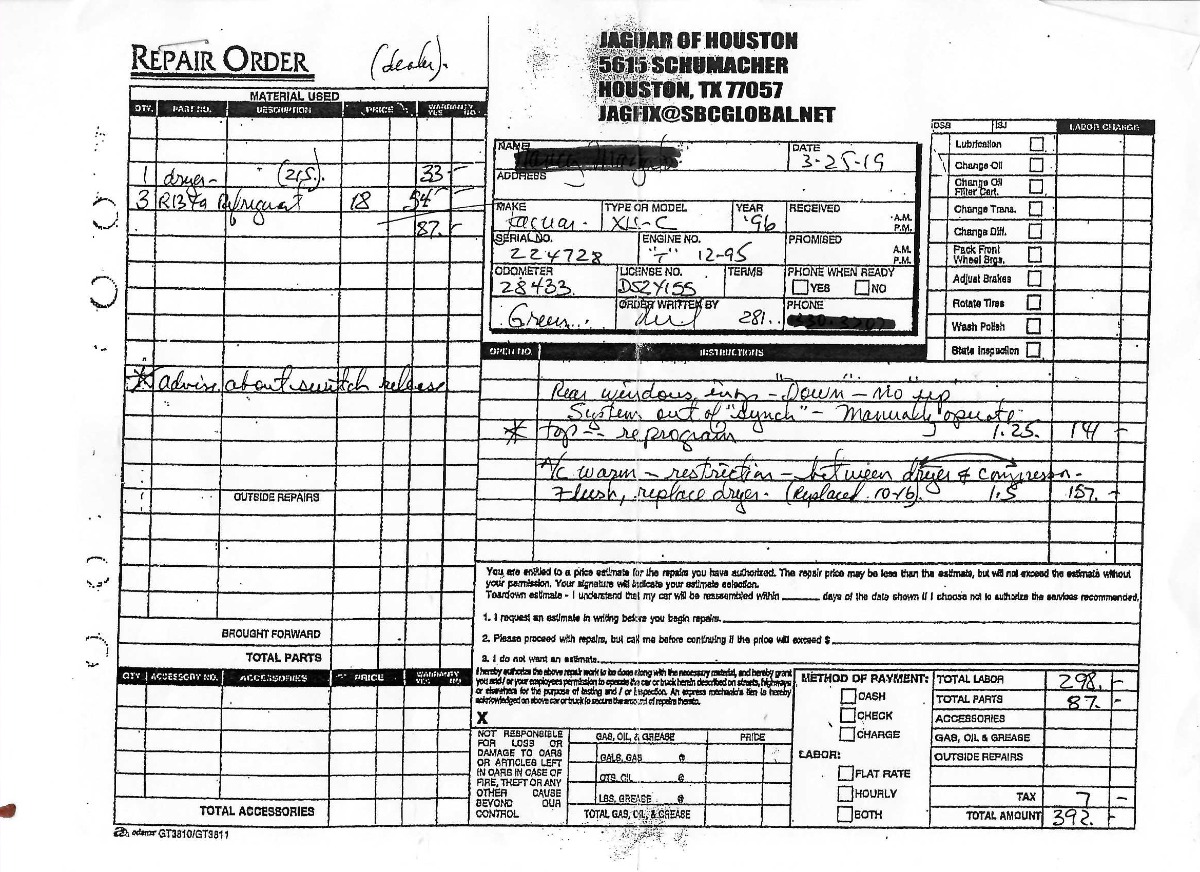 REPAIR ORDER
(dealer).
JAGUAR OF HOUSTON
5615 SCHUMACHER
HOUSTON, TX 77057
JAGFIX@SBCGLOBAL.NET
MATERIAL USED
QTY. PART NO. DESCRIPTION PRICE WARRANTY YES NO
1 dryer- (215). 33-
3 R134a Refrigerant 18 54
87.-
* advise about switch release
OUTSIDE REPAIRS
BROUGHT FORWARD
TOTAL PARTS
QTY ACCESSORY NO. ACCESSORIES PRICE WARRANTY YES NO
TOTAL ACCESSORIES
GT3810/GT3811
NAME
DATE
3-25-19
ADDRESS
MAKE TYPE OR MODEL YEAR RECEIVED A.M. P.M.
Jaguar XJS-C '96
SERIAL NO. ENGINE NO. PROMISED A.M. P.M.
224728 "T" 12-95
ODOMETER LICENSE NO. TERMS PHONE WHEN READY
28433 DS2Y155 YES NO
ORDER WRITTEN BY PHONE
Green. 281..
DSB ISJ LABOR CHARGE
Lubrication
Change Oil
Change Oil Filter Cart.
Change Trans.
Change Diff.
Pack Front Wheel Brgs.
Adjust Brakes
Rotate Tires
Wash Polish
State Inspection
OPER NO. INSTRUCTIONS
Rear windows, - "Down" - no "up"
System out of "synch" - Manually operate
* top - reprogram 1.25. 141 -
A/C warm - restriction - between dryer & compressor -
Flush, replace dryer. (Replaced 10-16). 1.5 157. -
You are entitled to a price estimate for the repairs you have authorized. The repair price may be less than the estimate, but will not exceed the estimate without
your permission. Your signature will indicate your estimate selection.
Teardown estimate - I understand that my car will be reassembled within ______ days of the date shown if I choose not to authorize the services recommended.
1. I request an estimate in writing before you begin repairs.
2. Please proceed with repairs, but call me before continuing if the price will exceed $
3. I do not want an estimate.
I hereby authorize the above repair work to be done along with the necessary material, and hereby grant
you and / or your employees permission to operate the car or truck herein described on streets, highways
or elsewhere for the purpose of testing and / or inspection. An express mechanic's lien is hereby
acknowledged on above car or truck to secure the amount of repairs thereto.
X
NOT RESPONSIBLE
FOR LOSS OR
DAMAGE TO CARS
OR ARTICLES LEFT
IN CARS IN CASE OF
FIRE, THEFT OR ANY
OTHER CAUSE
BEYOND OUR
CONTROL
GAS, OIL, & GREASE PRICE
GALS. GAS @
QTS. OIL @
LBS. GREASE @
TOTAL GAS, OIL, & GREASE
METHOD OF PAYMENT:
CASH
CHECK
CHARGE
LABOR:
FLAT RATE
HOURLY
BOTH
TOTAL LABOR 298. -
TOTAL PARTS 87. -
ACCESSORIES
GAS, OIL & GREASE
OUTSIDE REPAIRS
TAX 7 -
TOTAL AMOUNT 392. -